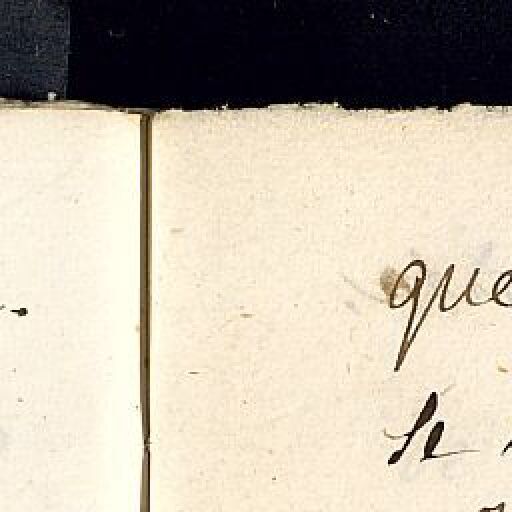 que
Se